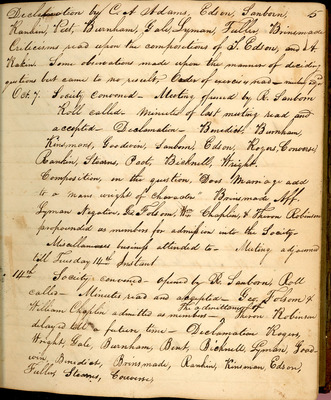 Declamation by C. A. Adams, Edson, Sanborn, 5
Rankin, Peet, Burnham, Gale, Lyman, Fuller, Brinsmade
Criticisms read upon the compositions of I. Edson, and A.
Rakin. Some observations made upon the manner of deciding
questions but came to no result. Order of exercises read
Oct. 7. Society convened — Meeting opened by R. Sanborn
Roll called — Minutes of last meeting read and
accepted — Declamation — Benedict, Burnham,
Kinsman, Goodwin, Sanborn, Edson, Rogers, Converse,
Rankin, Stearns, Peet, Bicknell, Wright.
Composition, on the question, Does Marriage add
to a mans weight of character Brinsmade Aff.
Lyman Negative. Geo Folsom, Wm Chaplin, & Theron Robinson
propounded as members for admission into the Society.
Miscellaneous business attended to — Meeting adjourned
till Tuesday 14th Instant
14th Society convened — opened by R. Sanborn, Roll
called — Minutes read and accepted — Geo. Folsom &
William Chaplin admitted as members — The admittance of Theron Robinson
delayed till a future time — Declamation Rogers,
Wright, Gale, Burnham, Bent, Bicknell, Lyman, Good-
win, Benedict, Brinsmade, Rankin, Kinsman, Edson,
Fuller, Stearns, Converse,